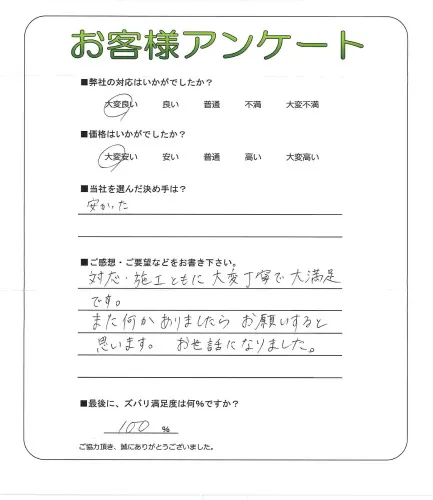 お客様アンケート
■弊社の対応はいかがでしたか?
大変良い 良い 普通 不満 大変不満
■価格はいかがでしたか?
大変安い 安い 普通 高い 大変高い
■当社を選んだ決め手は?
安かった
■ご感想・ご要望などをお書き下さい。
対応・施工ともに大変丁寧で大満足
です。
また何かありましたら お願いすると
思います。 お世話になりました。
■最後に、ズバリ満足度は何%ですか?
100 %
ご協力頂き、誠にありがとうございました。